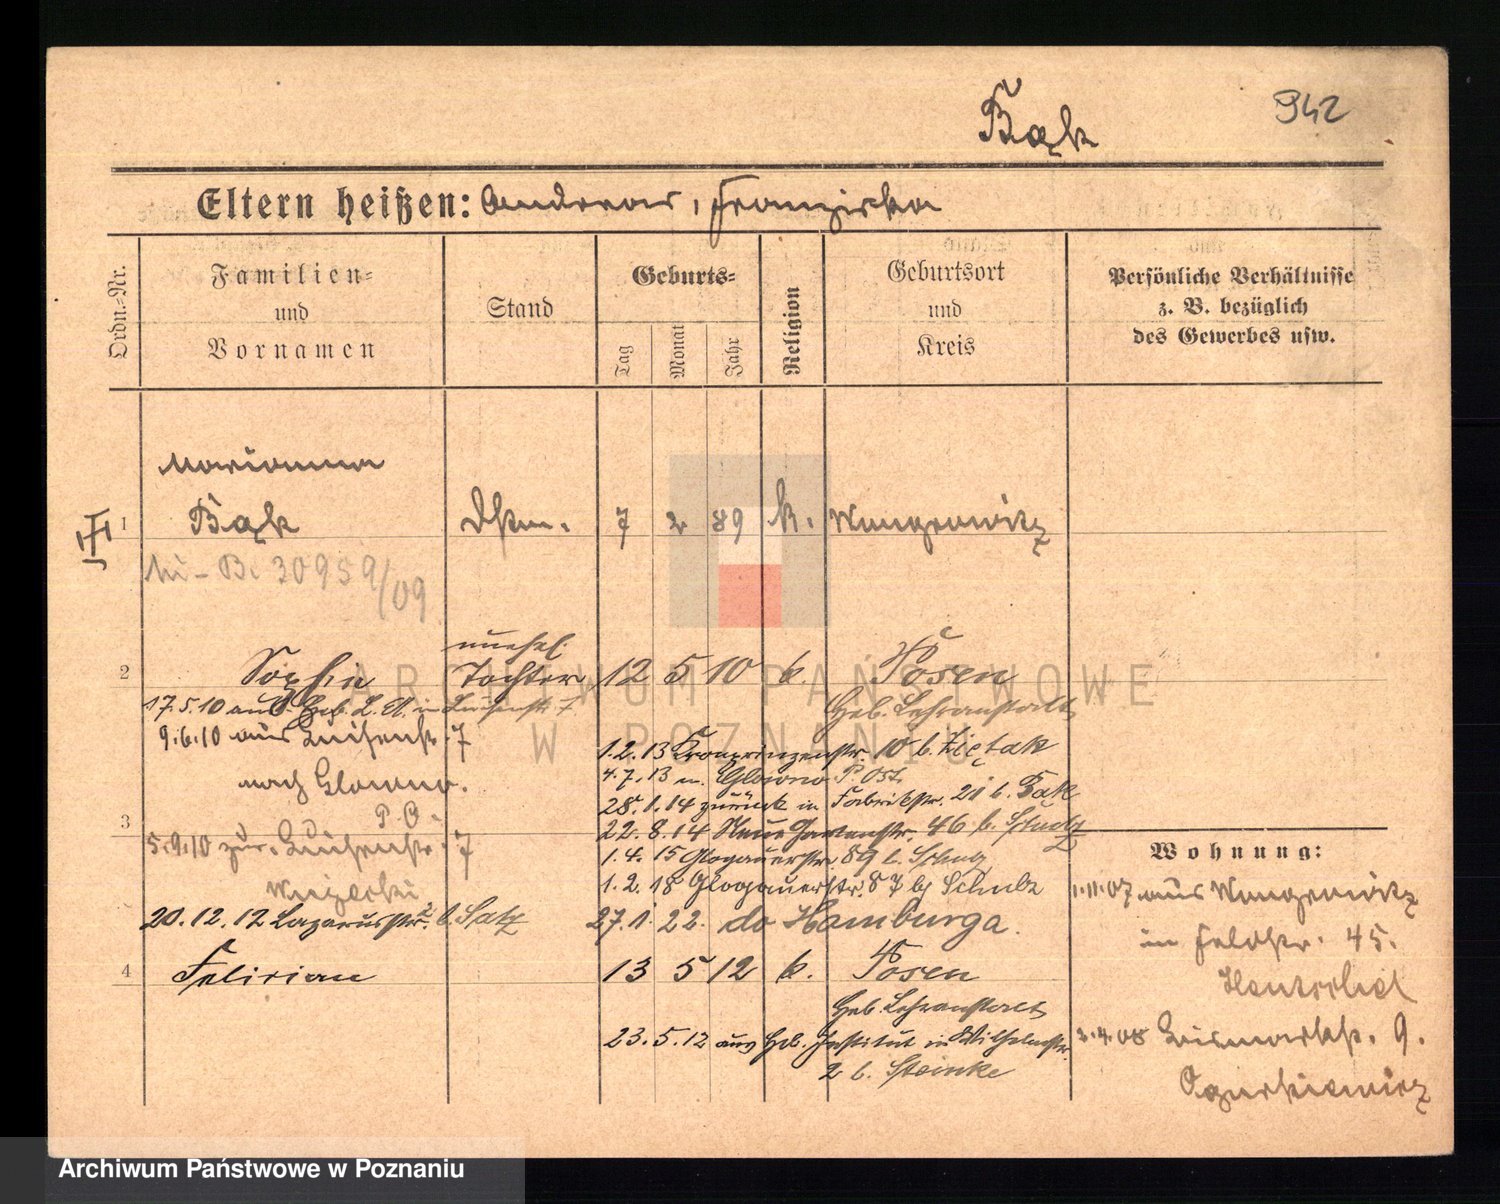 Bąk
942
Eltern heißen: Andreas, Franziska
Ordn.-Nr.
Familien-
und
Vornamen
Stand
Geburts-
Tag
Monat
Jahr
Religion
Geburtsort
und
Kreis
Persönliche Verhältnisse
z. B. bezüglich
des Gewerbes usw.
Marianna
1 Bąk 7 2 89 k. Wongrowitz
30959/09
unehel.
2 Sophie Tochter 12 5 10 k. Posen
17.5.10 aus Geb. L. A. in Luisenstr. 7
Geb. Lehranstalt
9.6.10 aus Luisenstr. 7
nach Glowno.
P. O.
3
5.9.10 zur. Luisenstr. 7
20.12.12 Lazarusstr. 2 b. Satz
1.2.13 Kronprinzenstr. 10 b. Ziętak
4.7.13 n. Glowno P. Ost
28.1.14 zurück in Fabrikstr. 21 b. Bąk
22.8.14 Neue Gartenstr. 46 b. Schulz
1.4.15 Glogauerstr. 89 b. Schulz
1.2.18 Glogauerstr. 87 b/ Schulz
27.1.22. do Hamburga.
4 Felician 13 5 12 k. Posen
Geb. Lehranstalt
23.5.12 aus Geb. Institut in Wilhelmstr.
2 b. Steinke
Wohnung:
1.11.07 aus Wongrowitz
in Feldstr. 45.
2.4.08 Bismarckstr. 9.
Ogurkiewicz
ARCHIWUM PAŃSTWOWE
W POZNANIU
Archiwum Państwowe w Poznaniu